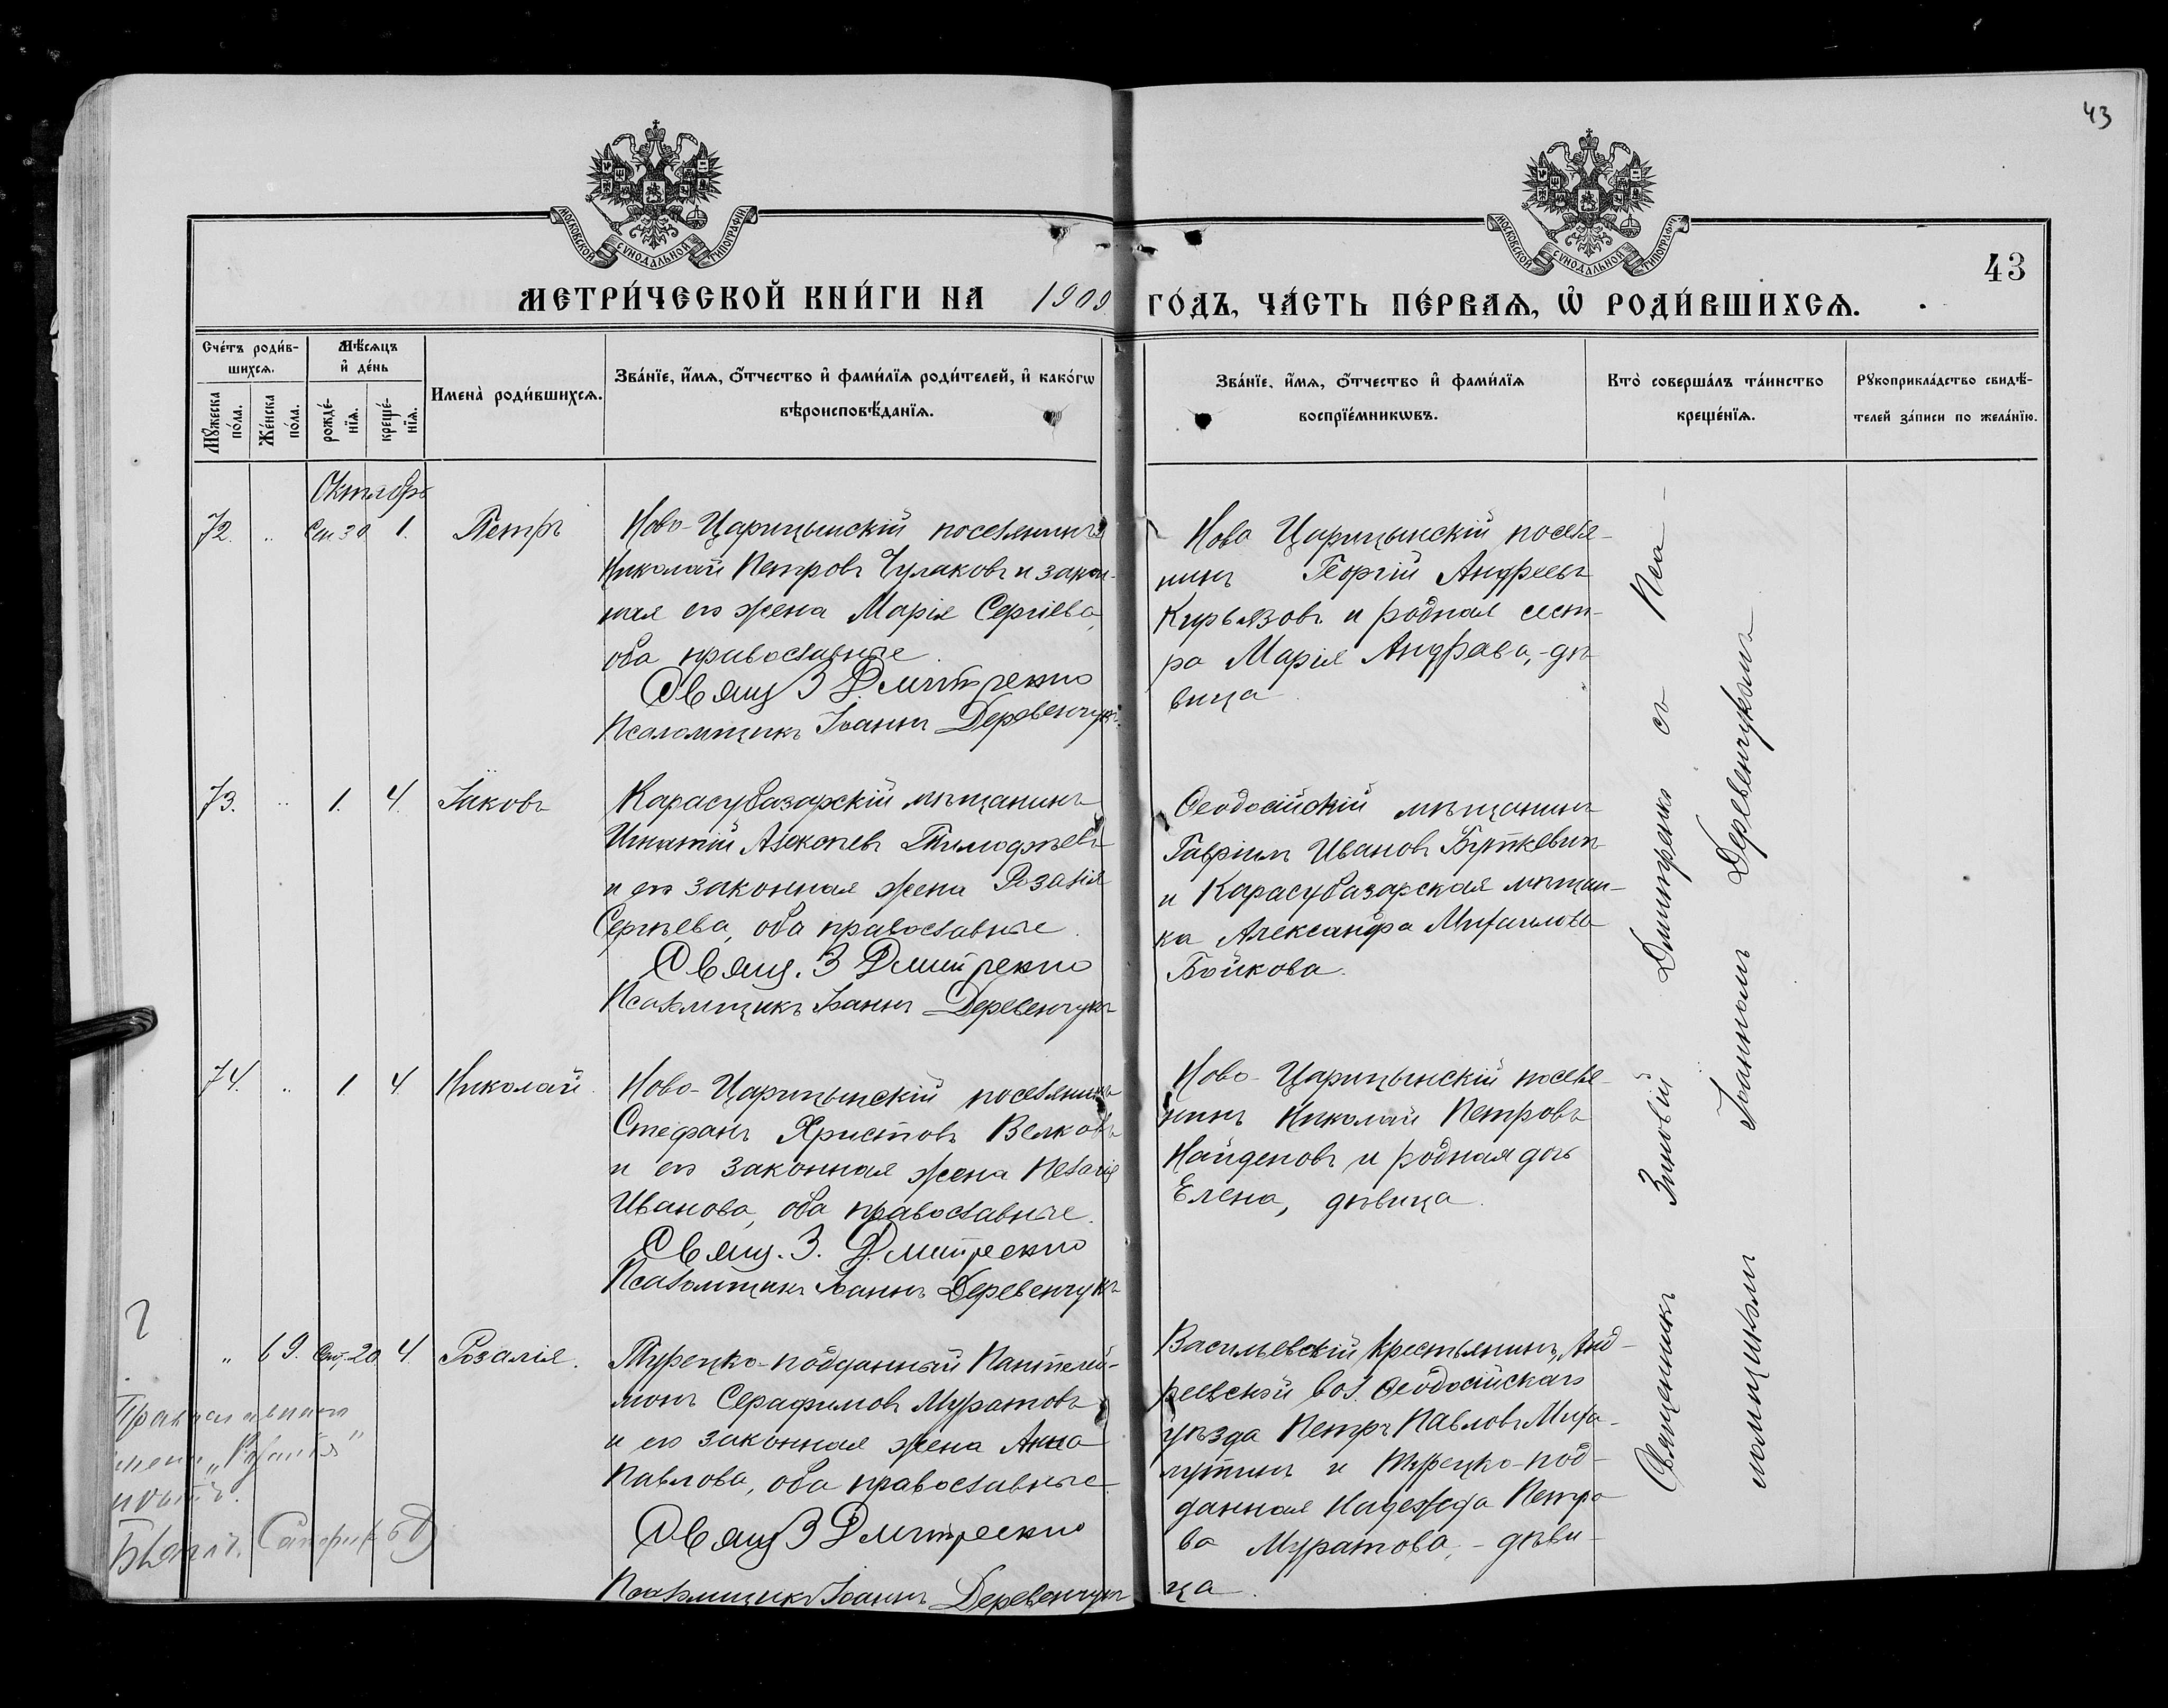 43
МОСКОВСКОЙ СУНОДАЛЬНОЙ ТИПОГРАФІИ
МОСКОВСКОЙ СУНОДАЛЬНОЙ ТИПОГРАФІИ
43
МЕТРИ́ЧЕСКОЙ КНИ́ГИ НА 1909 ГО́ДЪ, ЧА́СТЬ ПЕ́РВАЯ, Ѽ РОДИ́ВШИХСЯ.
Сче́тъ роди́в-
шихся.
Мꙋжеска
по́ла.
Же́нска
по́ла.
Мѣ́сяцъ
и҆ де́нь
рожде́-
нїя.
креще́-
нїя.
Имена̀ роди́вшихся.
Зва́нїе, и҆́мя, ѻ҆́тчество и҆ фами́лїя роди́телей, и҆ како́гѡ
вѣроисповѣ́данїя.
Зва́нїе, и҆́мя, ѻ҆́тчество и҆ фами́лїя
воспрїе́мникѡвъ.
Кто̀ соверша́лъ та́инство
креще́нїя.
Рꙋкоприкла́дство свидѣ́-
телей за́писи по жела́нїю.
Октябрь
72. " Сен 30 1. Петръ
Ново-Царицынскій поселянинъ
Николай Петровъ Чулаковъ и закон-
ная его жена Марія Сергіева,
оба православные.
Свящ З Дмитренко
Псаломщикъ Іоаннъ Деревенчукъ
Ново Царицынскій поселя-
нинъ Георгій Андреевъ
Кирьязовъ и родная сест-
ра Марія Андреева, - дѣ
вица.
73. " 1. 4. Іаковъ
Карасубазарскій мѣщанинъ
Игнатій Алексѣевъ Тимофѣевъ
и его законная жена Розалія
Сергѣева, оба православные.
Свящ. З Дмитренко
Псаломщикъ Іоаннъ Деревенчукъ
Ѳеодосійскій мѣщанинъ
Гавріилъ Ивановъ Буткевичъ
и Карасубазарская мѣщан-
ка Александра Михаилова
Бойкова.
74. " 1. 4. Николай.
Ново-Царицынскій поселянинъ
Стефанъ Христовъ Велковъ
и его законная жена Пелагія
Иванова, оба православные.
Свящ. З. Дмитренко
Псаломщикъ Іоаннъ Деревенчукъ
Ново-Царицынскій поселя-
нинъ Николай Петровъ
Найденовъ и родная дочь
Елена, дѣвица.
" 69. Сент. 20 4. Розалія.
Турецко-подданный Пантелей-
монъ Серафимовъ Муратовъ
и его законная жена Анна
Павлова, оба православные
Свящ З Дмитренко
Псаломщикъ Іоаннъ Деревенчукъ
Васильевскій крестьянинъ, Анд-
реевской вол. Ѳеодосійскаго
уѣзда Петръ Павловъ
и Турецко-под-
данная Надежда Петро
ва Муратова, - дѣви-
ца.
Священникъ Зиновій Дмитренко съ Пса-
ломщикомъ Іоанномъ Деревенчукомъ
имени „Розалія"